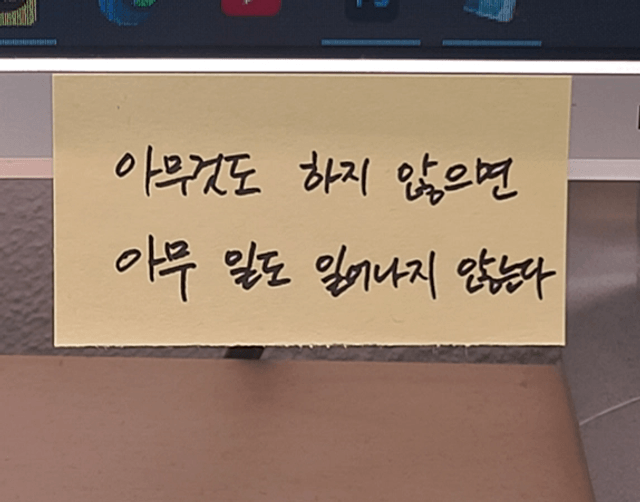 아무것도 하지 않으면
아무 일도 일어나지 않는다